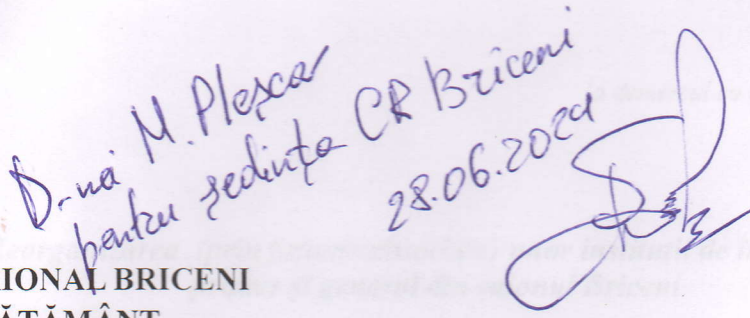 D-nei M. Pleșca
pentru ședința CR Briceni
28.06.2024
IONAL BRICENI
ĂȚĂMÂNT